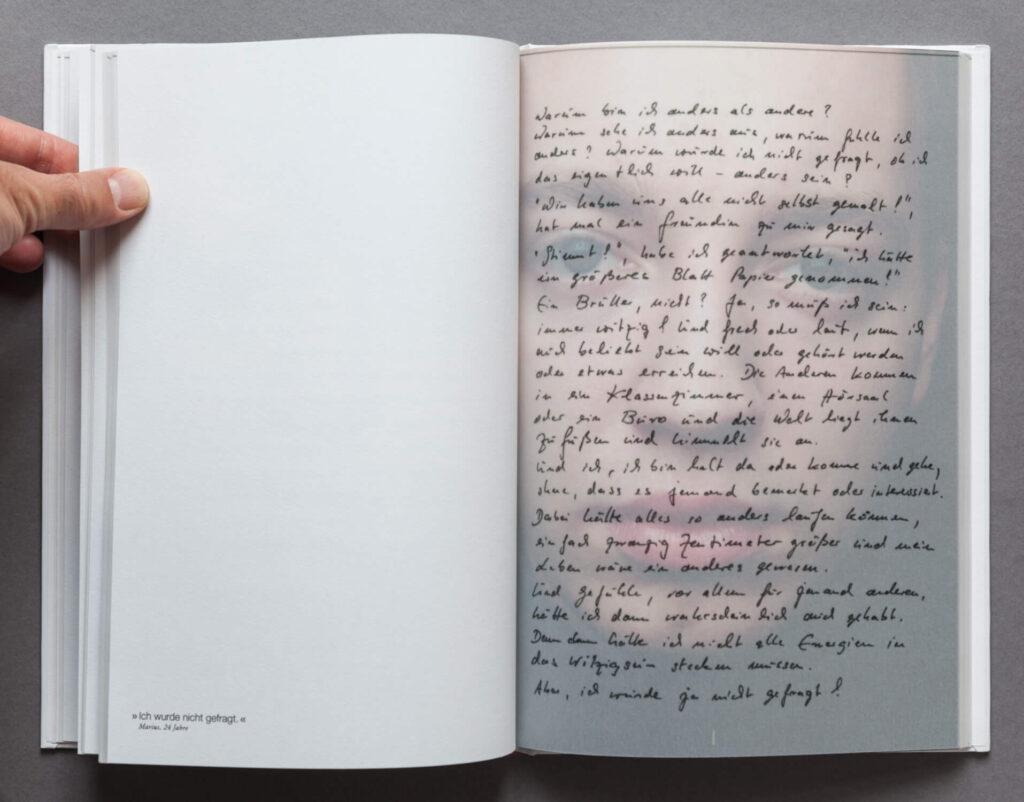 »Ich wurde nicht gefragt.«
Marius, 26 Jahre
Warum bin ich anders als andere?
Warum sehe ich anders aus, warum fühle ich
anders? Warum wurde ich nicht gefragt, ob ich
das eigentlich will - anders sein?
"Wir haben uns alle nicht selbst gemalt!",
hat mal ein freundin zu mir gesagt.
"Stimmt!", habe ich geantwortet, "ich hätte
ein größeres Blatt Papier genommen!"
Ein Brüller, nicht? Ja, so muß ich sein:
immer witzig! Und frech oder laut, wenn ich
auch beliebt sein will oder gehört werden
oder etwas erreichen. Die Anderen kommen
in ein Klassenzimmer, einen Hörsaal
oder ein Büro und die Welt liegt ihnen
zu füßen und himmelt sie an.
Und ich, ich bin halt da oder komme und gehe,
ohne, dass es jemand bemerkt oder interessiert.
Dabei hätte alles so anders laufen können,
einfach zwanzig Zentimeter größer und mein
Leben wäre ein anderes gewesen.
Und gefühle, vor allem für jemand anderen,
hätte ich dann wahrscheinlich auch gehabt.
Denn dann hätte ich nicht alle Energien in
das witzigsein stecken müssen.
Aber, ich wurde ja nicht gefragt!